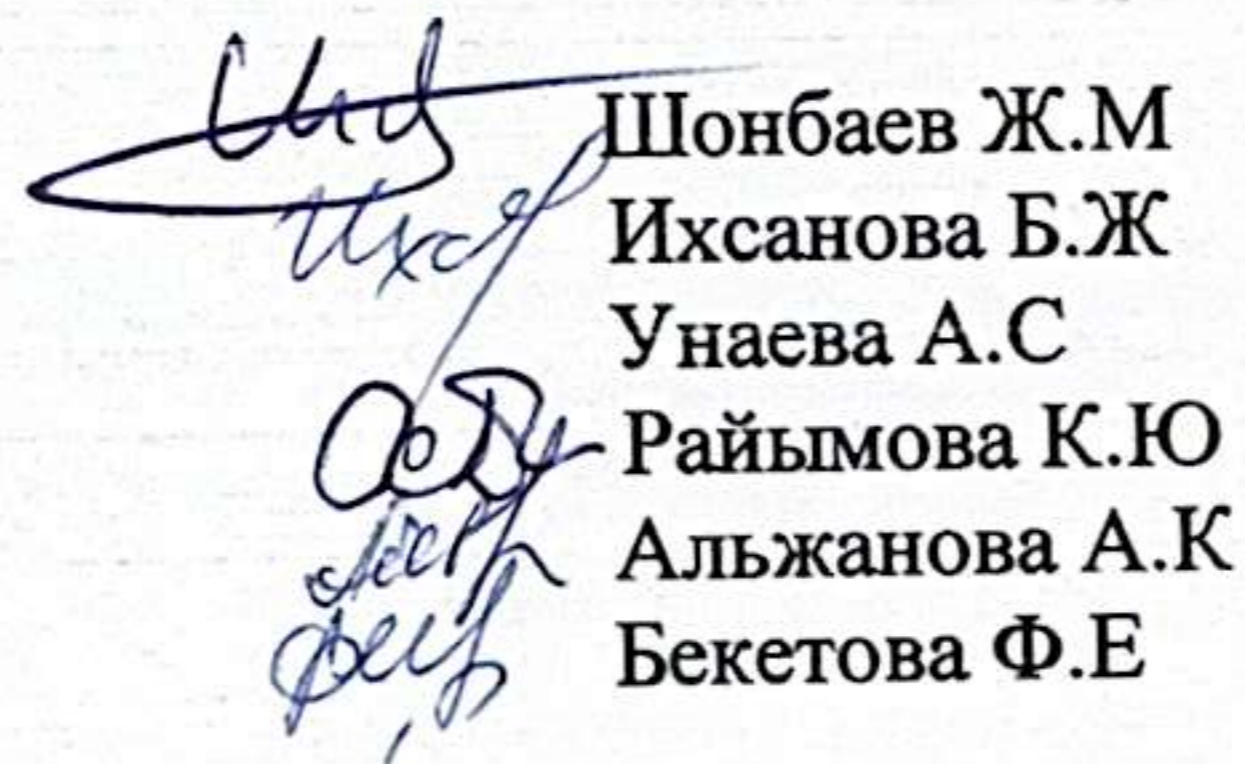 Шонбаев Ж.М
Ихсанова Б.Ж
Унаева А.С
Райымова К.Ю
Альжанова А.К
Бекетова Ф.Е